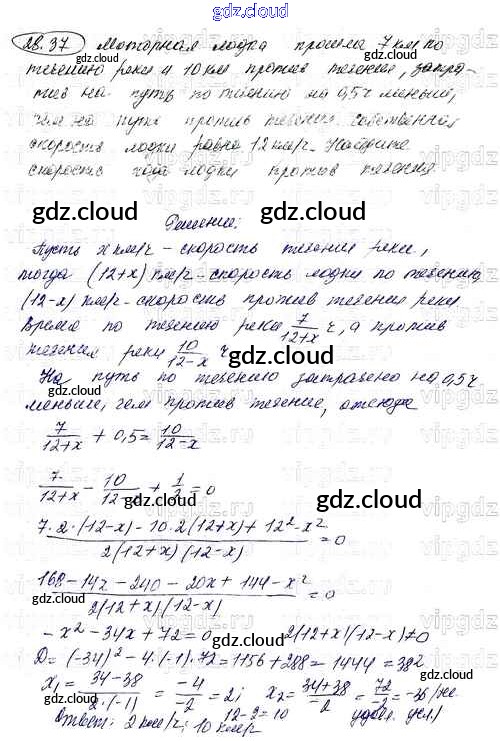 gdz.cloud
28.37 Моторная лодка прошла 7 км по
течению реки и 10 км против течения, затра-
тив на путь по течению на 0,5 ч меньше,
чем на путь против течения. Собственная
скорость лодки равна 12 км/ч. Найдите
скорость хода лодки против течения.
gdz.cloud gdz.cloud
Решение:
Пусть x км/ч - скорость течения реки,
тогда (12+x) км/ч - скорость лодки по течению,
(12-x) км/ч - скорость против течения реки
Время по течению реки 7/(12+x) ч, а против
течения реки 10/(12-x) ч
gdz.cloud
На путь по течению затрачено на 0,5 ч
меньше, чем против течение, отсюда
7/(12+x) + 0,5 = 10/(12-x)
gdz.cloud
7/(12+x) - 10/(12-x) + 1/2 = 0
gdz.cloud
(7·2·(12-x) - 10·2(12+x) + 12² - x²)/(2(12+x)(12-x)) = 0
(168 - 14x - 240 - 20x + 144 - x²)/(2(12+x)(12-x)) = 0
-x² - 34x + 72 = 0 2(12+x)(12-x)≠0
gdz.cloud
D = (-34)² - 4·(-1)·72 = 1156 + 288 = 1444 = 38²
x₁ = (34-38)/(2·(-1)) = -4/-2 = 2; x₂ = (34+38)/-2 = 72/-2 = -36 (не
удовл. усл.)
12-2=10
Ответ: 2 км/ч; 10 км/ч
gdz.cloud gdz.cloud